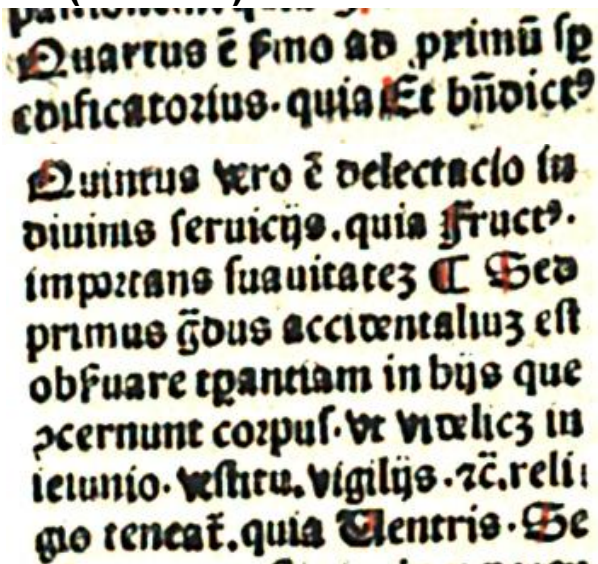 Quartus ē ſmo ad primū ſꝑ
edificatorius. quia Et bn̄dictꝰ
Quintus vero ē delectacio in
diuinis ſeruicijs. quia Fructꝰ.
importans ſuauitateꝫ ⸿ Sed
primus gͣ̄dus accidentaliuꝫ eſt
obẜuare tꝑantiam in hijs que
ꝯcernunt corpuſ. vt videlicꝫ in
ieiunio. veſtitu. vigilijs. ⁊c̄. reli
gio teneat᷑. quia Uentris. Se